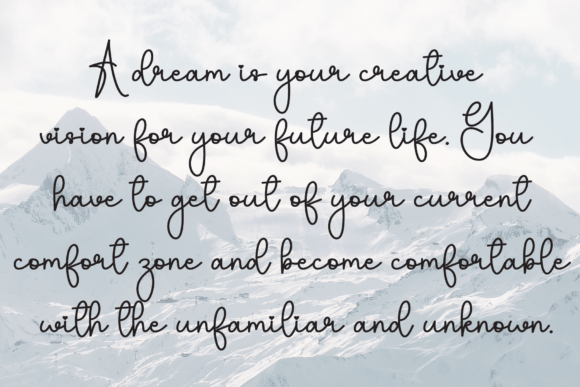 A dream is your creative
vision for your future life. You
have to get out of your current
comfort zone and become comfortable
with the unfamiliar and unknown.